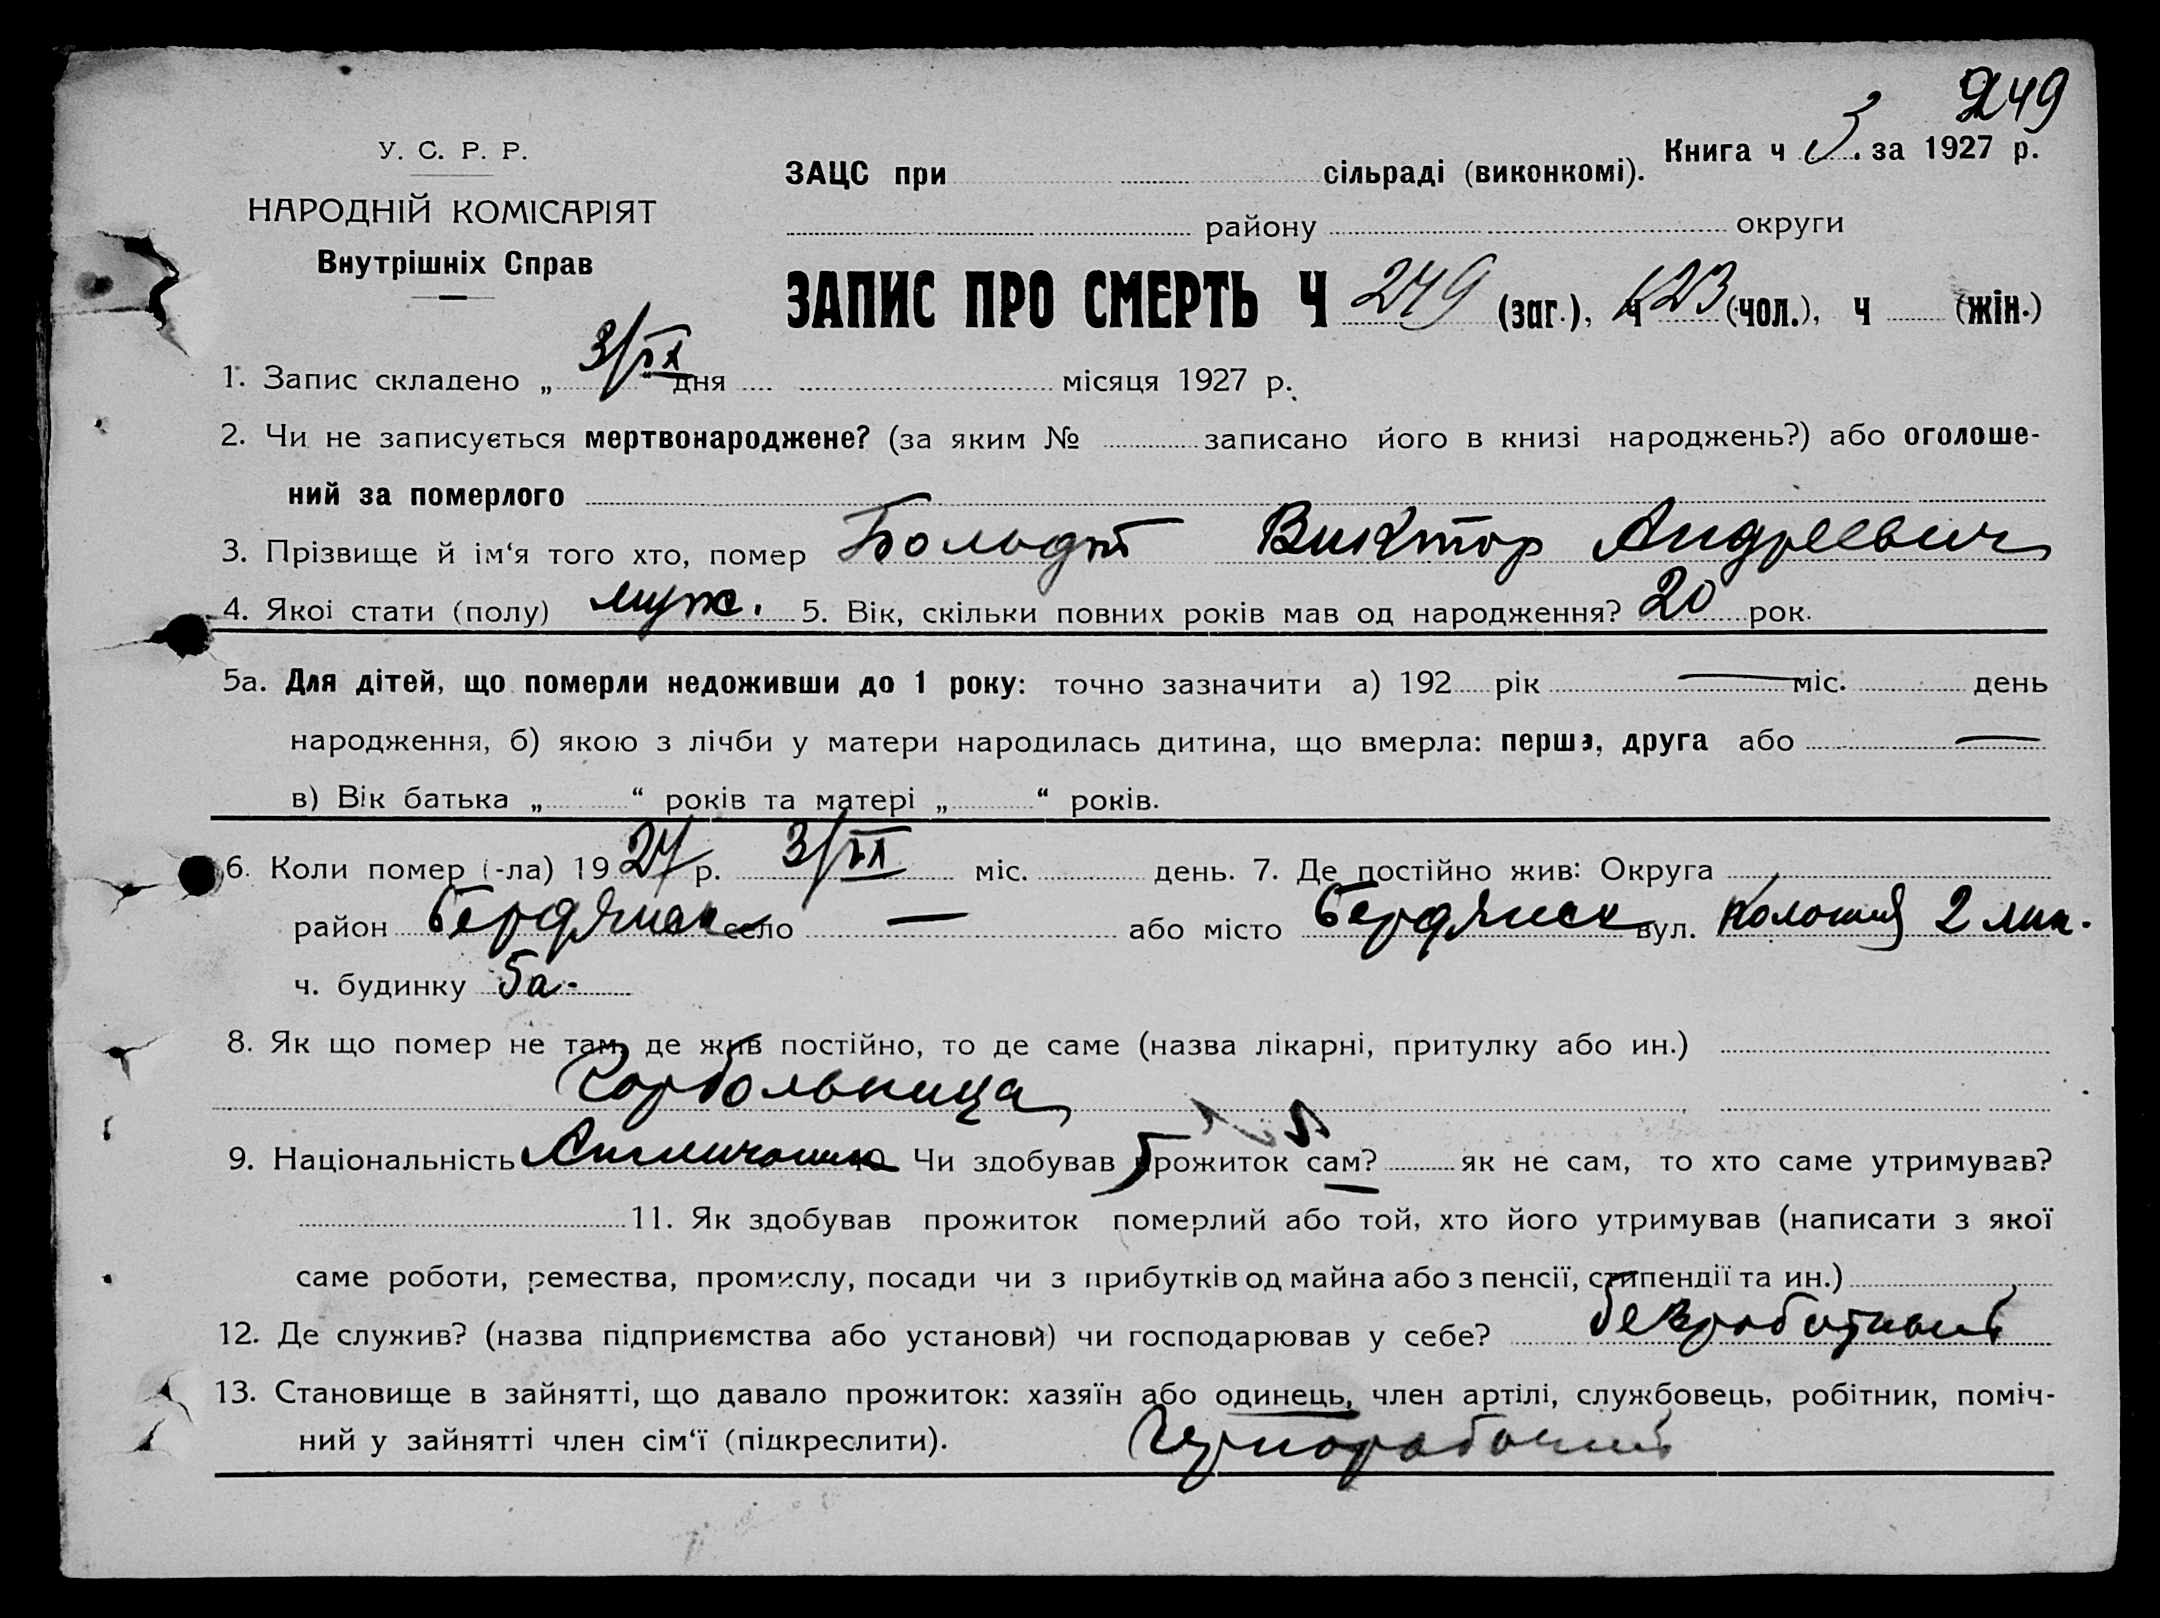 249
У. С. Р. Р.
НАРОДНІЙ КОМІСАРІЯТ
Внутрішніх Справ
Книга ч 3 за 1927 р.
ЗАЦС при сільраді (виконкомі).
району округи
ЗАПИС ПРО СМЕРТЬ Ч 249 (заг.), ч 123 (чол.), ч (жін.)
1. Запис складено „ 3/IX дня місяця 1927 р.
2. Чи не записується мертвонароджене? (за яким № записано його в книзі народжень?) або оголоше-
ний за померлого
3. Прізвище й ім‘я того хто, помер Больодт Виктор Андреевич
4. Якоі стати (полу) муж. 5. Вік, скільки повних років мав од народження? 20 рок.
5а. Для дітей, що померли недоживши до 1 року: точно зазначити а) 192 рік — міс. день
народження, б) якою з лічби у матери народилась дитина, що вмерла: перша, друга або —
в) Вік батька „ “ років та матері „ “ років.
6. Коли помер (-ла) 1927 р. 3/IX міс. день. 7. Де постійно жив: Округа
район Бердянск село — або місто Бердянск вул. Колония 2 лин.
ч. будинку 5а.
8. Як що помер не там, де жив постійно, то де саме (назва лікарні, притулку або ин.)
Горбольница
9. Національність 10 Чи здобував прожиток сам? як не сам, то хто саме утримував?
11. Як здобував прожиток померлий або той, хто його утримував (написати з якої
саме роботи, ремества, промислу, посади чи з прибутків од майна або з пенсії, стипендії та ин.)
12. Де служив? (назва підприємства або установи) чи господарював у себе? безработный
13. Становище в зайнятті, що давало прожиток: хазяїн або одинець, член артілі, службовець, робітник, поміч-
ний у зайнятті член сім‘ї (підкреслити). Чернорабочий